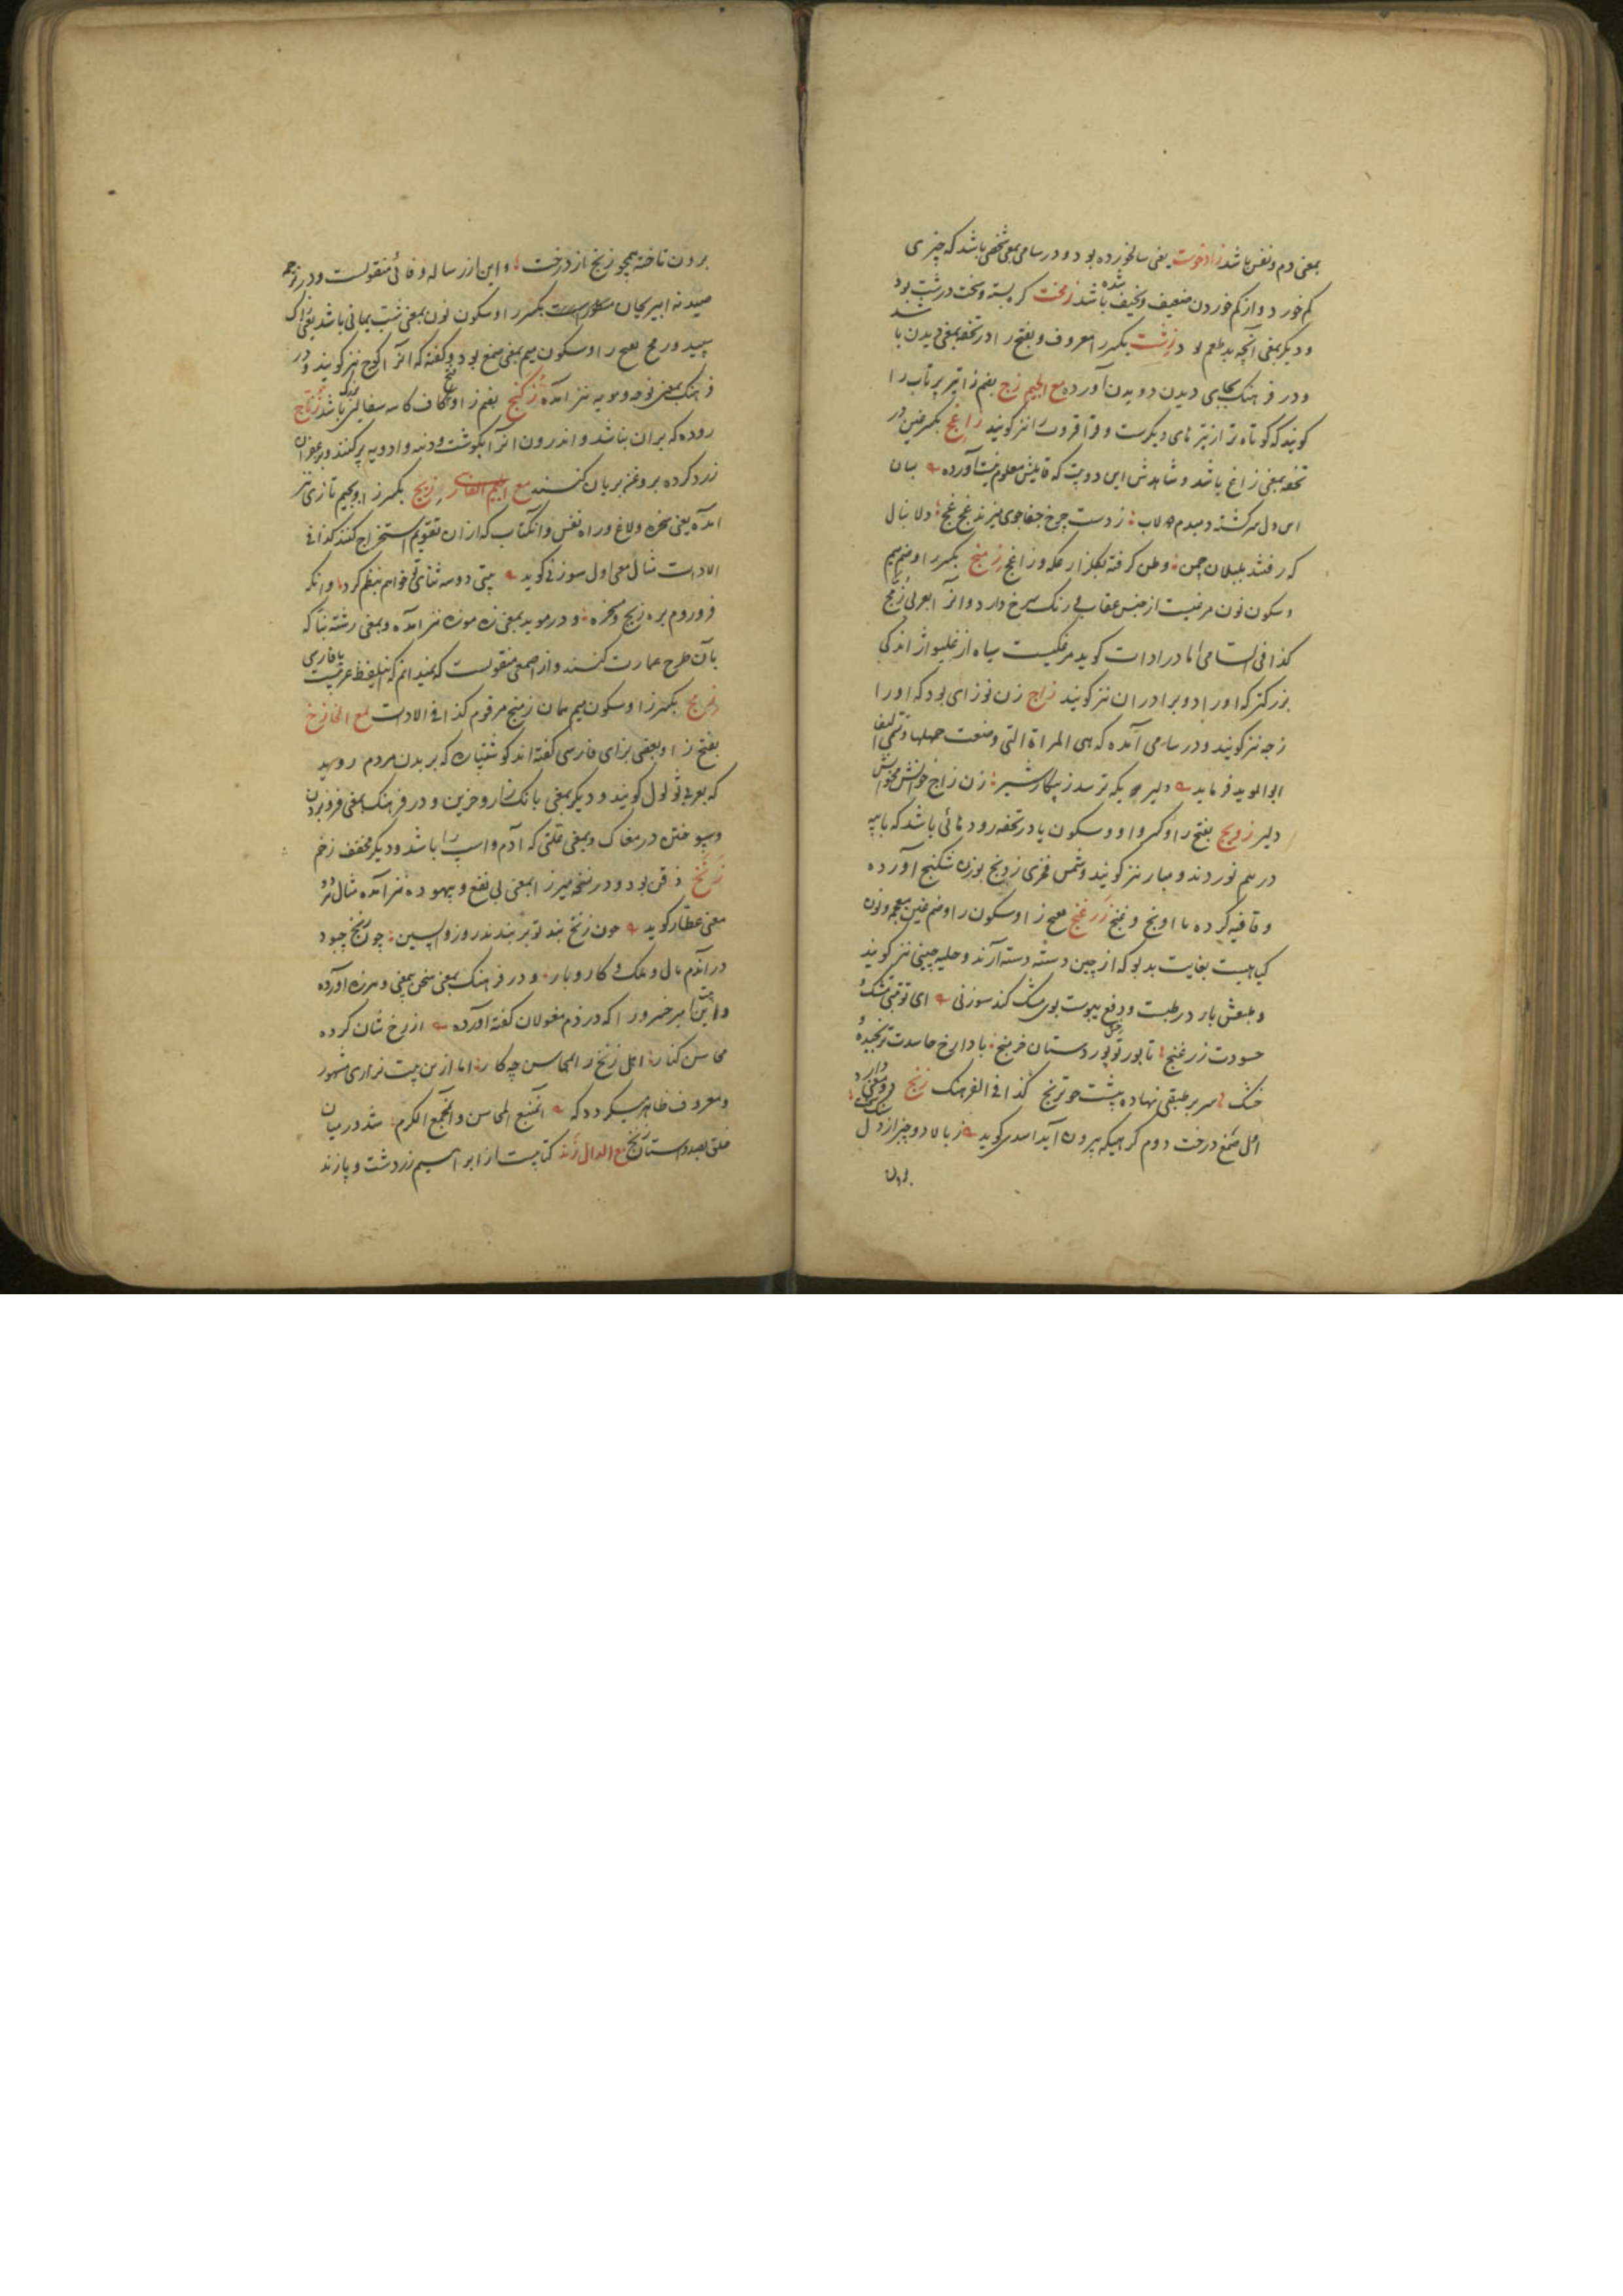 بمعنی دم و نفس باشد زادخوست یعنی سالخورده بود و در سامی بمعنی شخصی باشد که چیزی
کم خورد و از کم خوردن ضعیف و نحیف شده باشد زمخت گره بسته و سخت و درشت بود
و دیگر بمعنی آنچه بد طعم بود زشت بکسر زا معروف و بفتح زا در تحفه بمعنی دیدن باشد
و در فرهنگ بجای دیدن دویدن آورده مع الجیم زج بضم زا تیر پرتاب را
کویند که کوتاه تر از تیرهای دیکرست و قراقروت را نیز کویند زاغج بکسر غین در
تحفه بمعنی زاغ باشد و شاهدش این دو بیت که قایلش معلوم نیست آورده بسان
این دل سرکشته دمبدم دولاب ز دست چرخ جفاجوی میزند غج غج دلا بنال
که رفتند بلبلان چمن وطن کرفته بکلزار عکه و زاغج زمنج بکسر زا و ضم میم
و سکون نون مرغیست از جنس عقاب که رنک سرخ دارد و آنرا بعربی زمج
کذا فی السامی اما در ادات کوید مرغکیست سیاه از غلیواژ اندکی
بزرکتر که او را دوبرادران نیز کویند زاج زن نوزای بود که او را
زچه نیز کویند و در سامی آمده که هی المراة التی وضعت حملها
ابو الموید فرماید دلیری که ترسد ز پیکار شیر زن زاج خوانش مخوانش
دلیر زویج بفتح زا و کسر واو و سکون یا در تحفه رودهائی باشد که با پیه
در هم نوردند و مبار نیز کویند و شمس فخری زونج بوزن شکنج آورده
و قافیه کرده با اورنج و غنج زرغنج بفتح زا و سکون را و ضم غین معجمه و نون
کیاهیست بغایت بدبو که از چین دسته دسته آرند و حلبه چینی نیز کویند
و طبعش بار در طبست و دفع یبوست بوی مشک کند سوزنی ای تو قنینی مشک و
حسودت زرغنج تا بود
خشک سر بر طبقی نهاده بیشت چو ترنج کذا فی الفرهنک زنج
اول صمغ درخت دوم کرمیکه بیرون آید اسدی کوید ز بالا دو چیز از دل
برون
برون تاخته همچو زنج از درخت و این از رساله وفائی منقولست و در ترجمه
صیدنه ابو ریحان بکسر زا و سکون نون بمعنی شب یمانی باشد یعنی زاک
سپید و زمج بفتح زا و سکون میم بمعنی صمغ بود و کفته که آنرا اکوج نیز کویند و در
فرهنک بمعنی نوحه و مویه نیز آمده زکنج بضم زا و فتح کاف کاسه سفالین باشد زناج
روده که بریان باشد و اندرون آنرا بکوشت و دنبه و ادویه پر کنند و بزعفران
زرد کرده بروغن بریان کنند مع الجیم الفارسی زیج بکسر زا و بجیم تازی نیز
آمده یعنی سخره و لاغ و راه نفس و آن کتاب که از ان تقویم استخراج کنند کذا فی
الادات مثال معنی اول سوزنی کوید بیتی دو سه ثنای تو خواهم بنظم کرد وانکه
فرو روم بره زیج و مسخره و در موید بمعنی زه موزه نیز آمده و بمعنی رشته بنا که
بآن طرح عمارت کنند و از اصمعی منقولست که نمیدانم که این لفظ عربیست یا فارسی
زمج بکسر زا و سکون میم همان زمنج مرقوم کذا فی الادات مع الخا زخ
بفتح زا و بعضی بزای فارسی کفته اند کوشتپاره که بر بدن مردم روید
که بعربی ثولول کویند و دیکر بمعنی بانک نزار و حزین و در فرهنک بمعنی فرو بردن
و سپوختن در مغاک و بمعنی علتی که آدم و اسپ را باشد و دیکر مخفف زخم
زنخ ذقن بود و در نسخه میرزا بمعنی بی نفع و بیهوده نیز آمده مثال هر دو
معنی عطار کوید چون زنخ بند تو بر بندند روز واپسین چون زنخ چبود
در آندم مال و ملک و کار و بار و در فرهنک بمعنی سخن بیمعنی و هرزه آورده
و این بیت میر خسرو را که در ذم مغولان کفته آورده از رخ شان کرده
محاسن کنار اهل زنخ را بمحاسن چه کار اما از بن بیت نزاری مشهور
و معروف ظاهر میکردد که المنبع المحاسن و المجمع الکرم شد در میان
خلق بصد داستان زنخ مع الدال زند کتابیست از ابراهیم زردشت و پازند